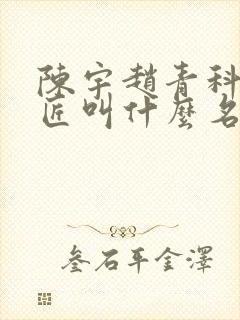 陳宇趙青科
匠叫什麼名
叁石平金澤